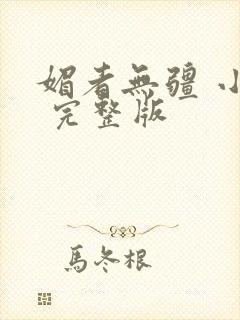 媚者無疆 小
完整版
馬冬根